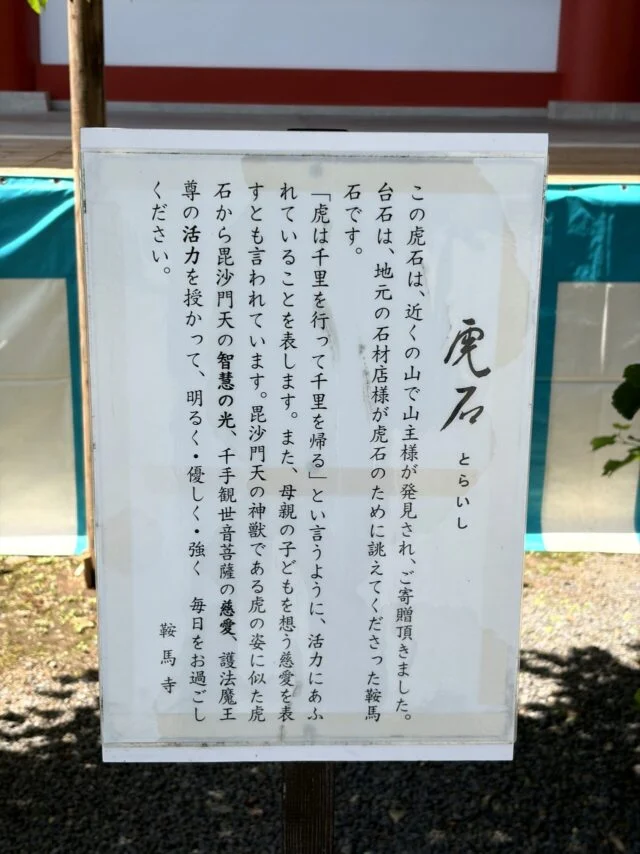 虎石 とらいし
この虎石は、近くの山で山主様が発見され、ご寄贈頂きました。
台石は、地元の石材店様が虎石のために誂えてくださった鞍馬
石です。
「虎は千里を行って千里を帰る」とい言うように、活力にあふ
れていることを表します。また、母親の子どもを想う慈愛を表
すとも言われています。毘沙門天の神獣である虎の姿に似た虎
石から毘沙門天の智慧の光、千手観世音菩薩の慈愛、護法魔王
尊の活力を授かって、明るく・優しく・強く　毎日をお過ごし
ください。
鞍馬寺